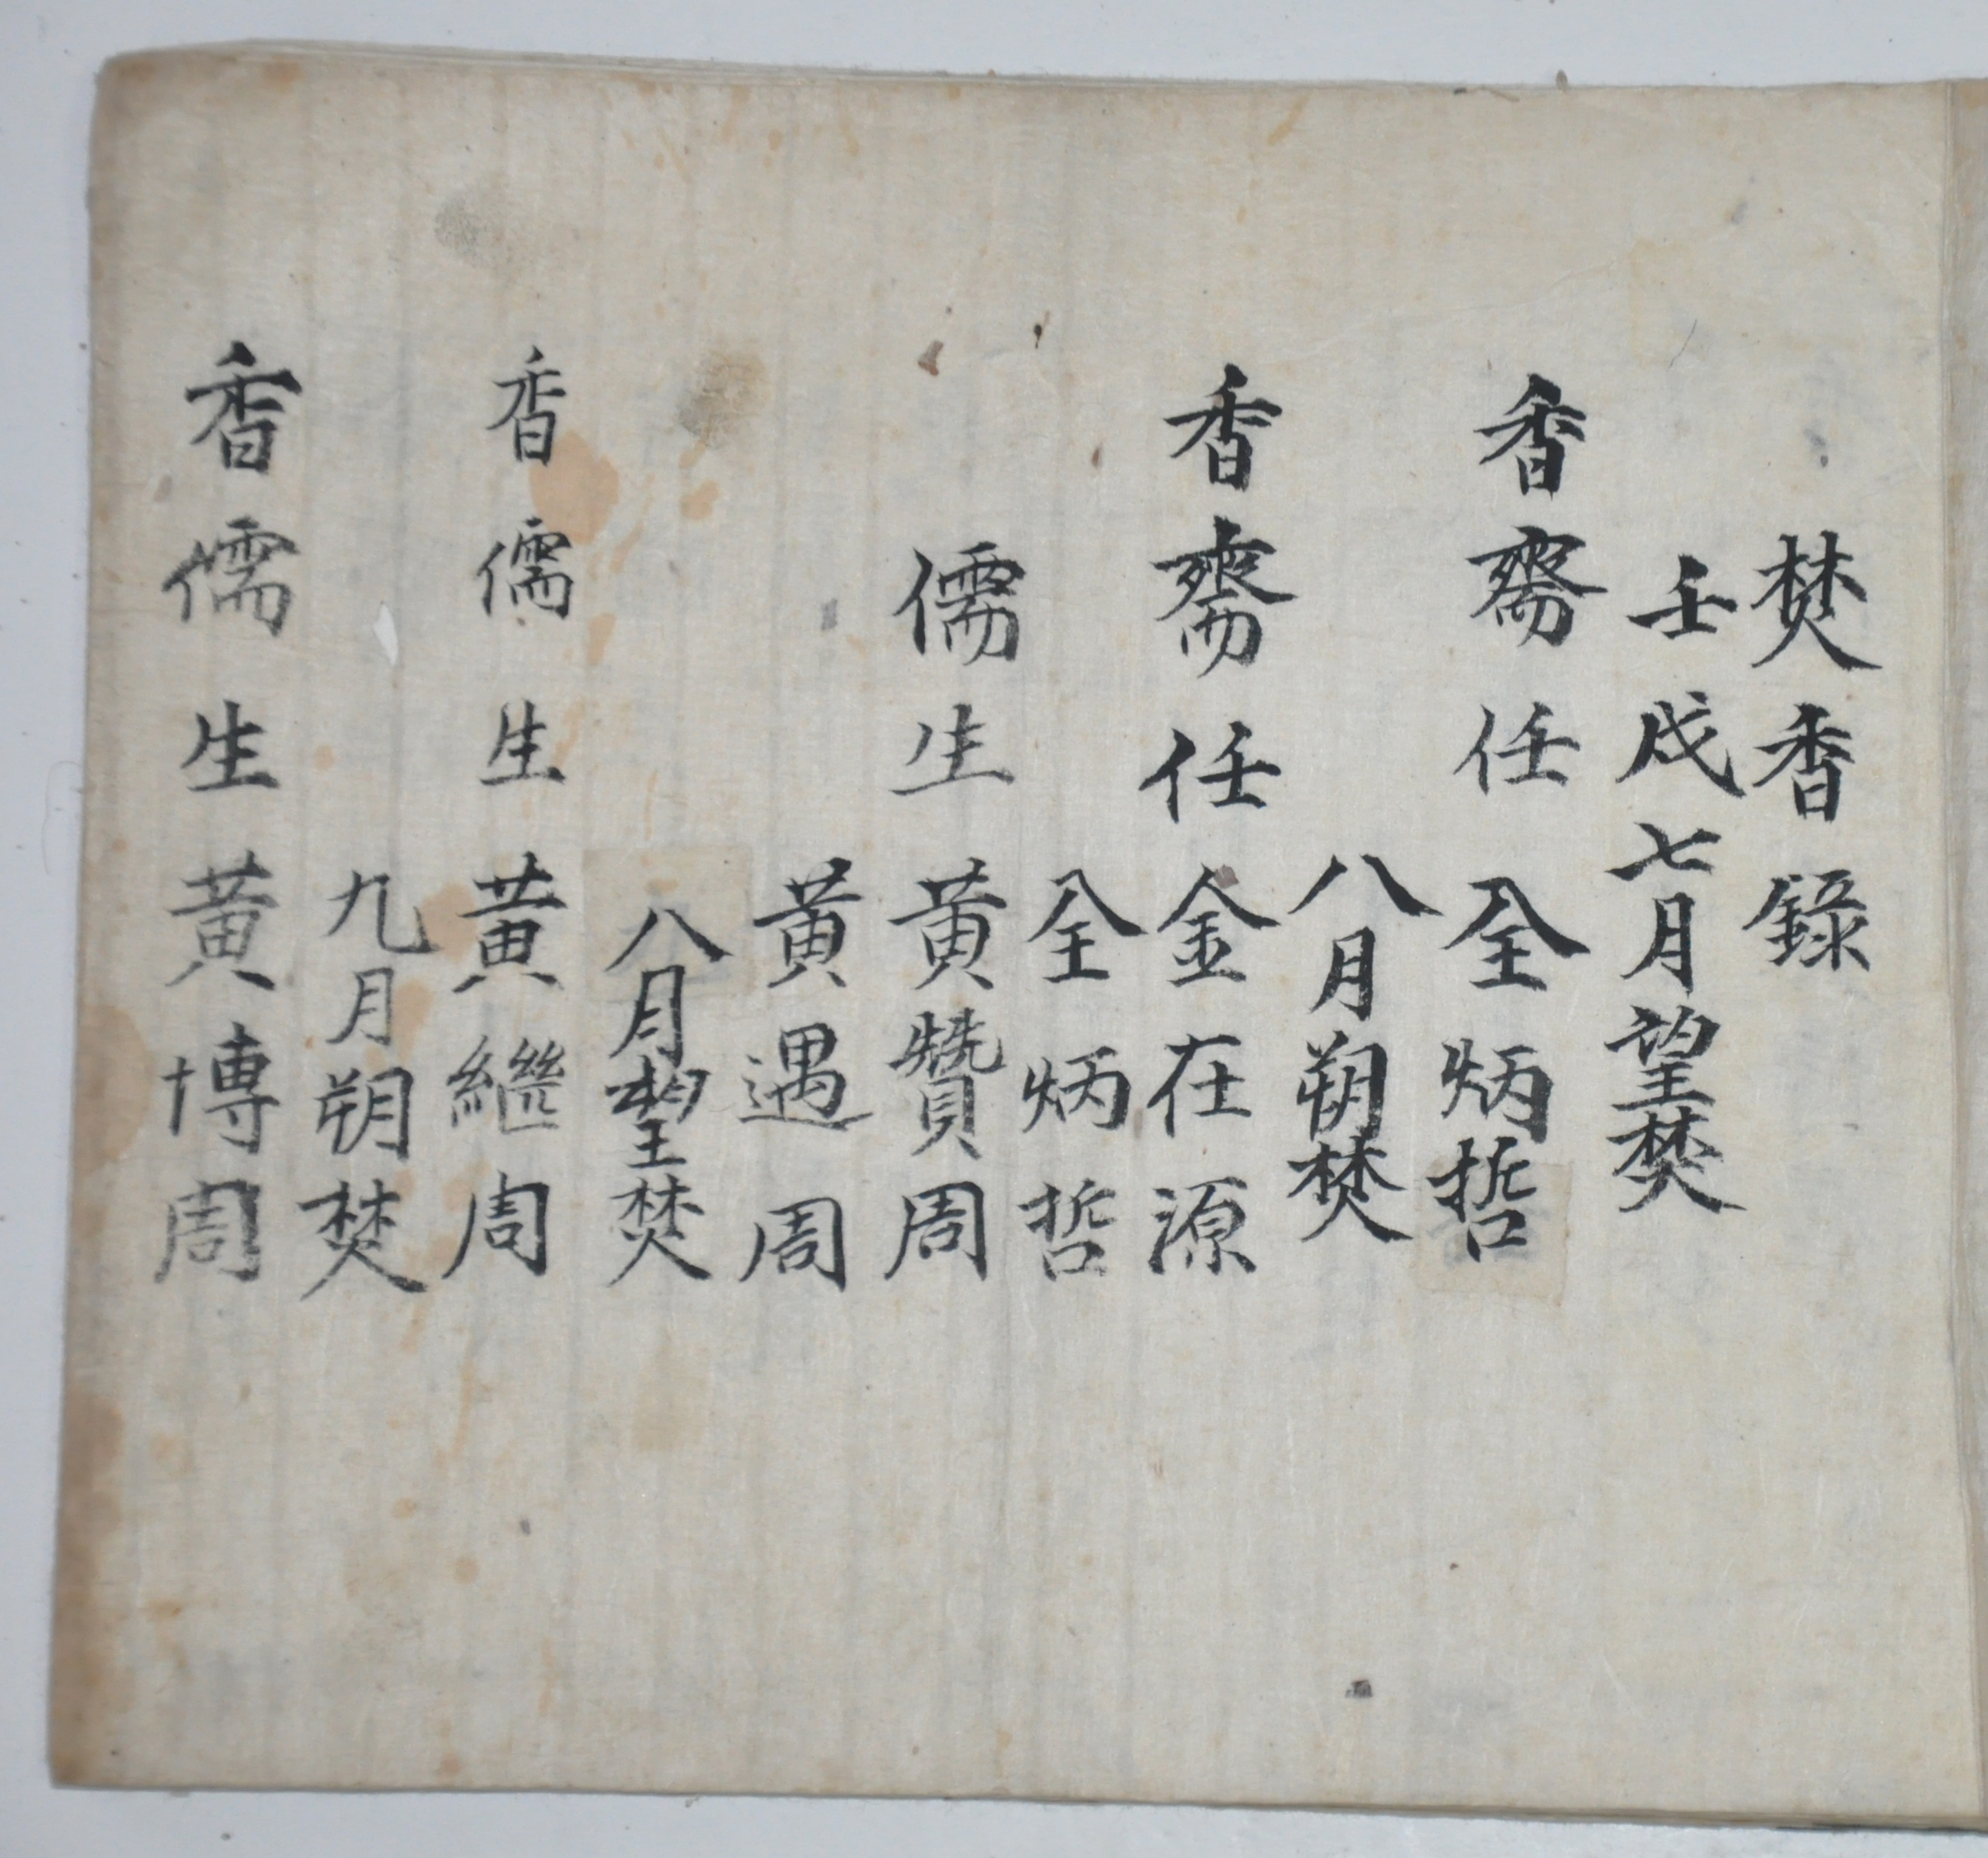 焚香錄
壬戌七月望焚
香齋任全炳哲
八月朔焚
香齋任金在源
全炳哲
儒生黃贊周
黃遇周
八月望焚
香儒生黃繼周
九月朔焚
香儒生黃博周